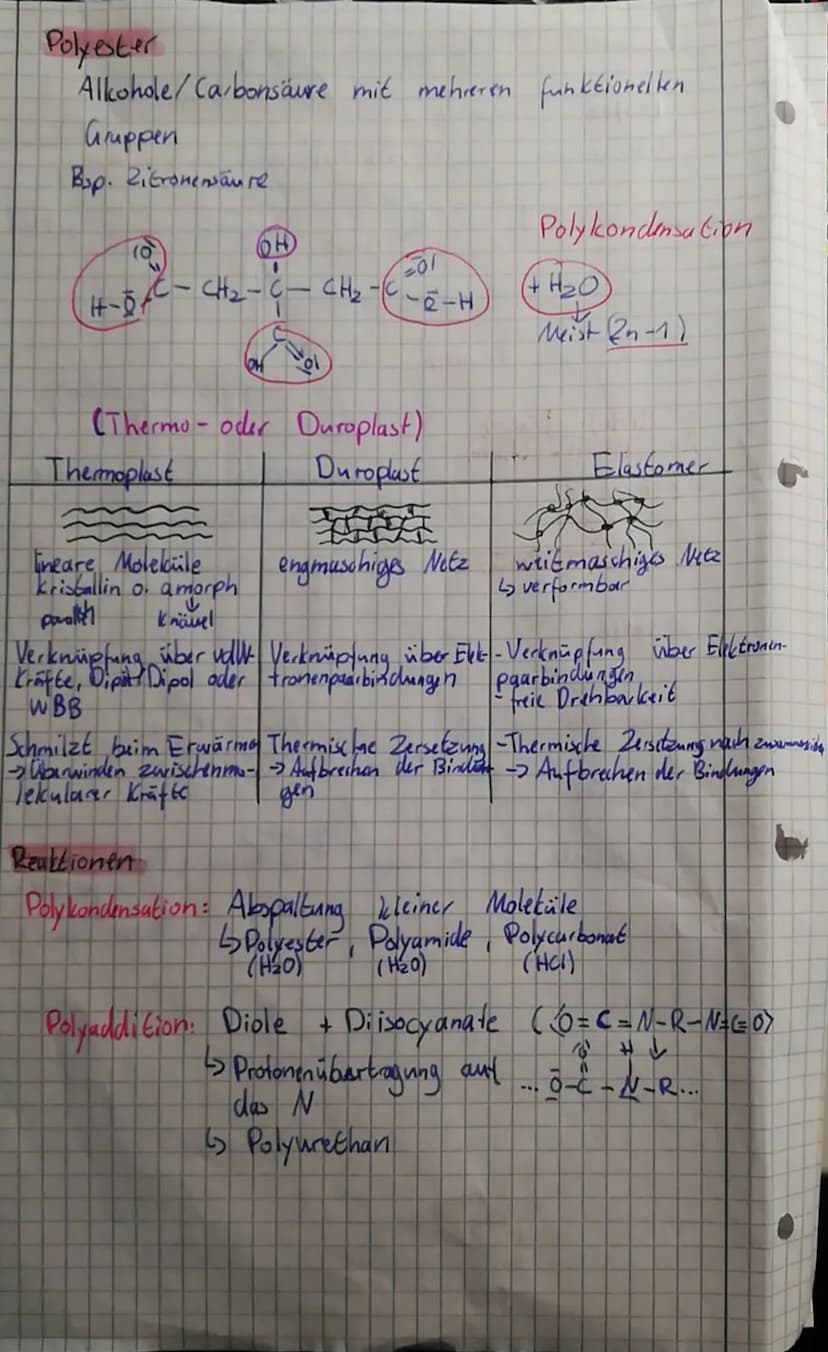 Polyester
Alkohole/Carbonsäure mit mehreren funktionellen
Gruppen
Bsp. Zitronensäure
Polykondensation
|O OH =O|
C – CH2 – C – CH2 – C + H2O
H–O –O–H
Meist (2n-1)
C
OH O|
(Thermo- oder Duroplast)
Thermoplast Duroplast Elastomer
lineare Moleküle engmaschiges Netz weitmaschiges Netz
kristallin o. amorph ↳ verformbar
parallel Knäuel
Verknüpfung über vdW- Verknüpfung über Elek- - Verknüpfung über Elektronen-
Kräfte, Dipol/Dipol oder tronenpaarbindungen paarbindungen
WBB - freie Drehbarkeit
Schmilzt beim Erwärme Thermische Zersetzung - Thermische Zersetzung nach
→ Überwinden zwischenmo- → Aufbrechen der Bindun → Aufbrechen der Bindungen
lekularer Kräfte gen
Reaktionen
Polykondensation: Abspaltung kleiner Moleküle
↳ Polyester, Polyamide, Polycarbonat
(H2O) (H2O) (HCl)
Polyaddition: Diole + Diisocyanate (⟨O=C=N–R–N=C=O⟩
|O H ↓
↳ Protonenübertragung auf ... O–C–N–R...
das N
↳ Polyurethan